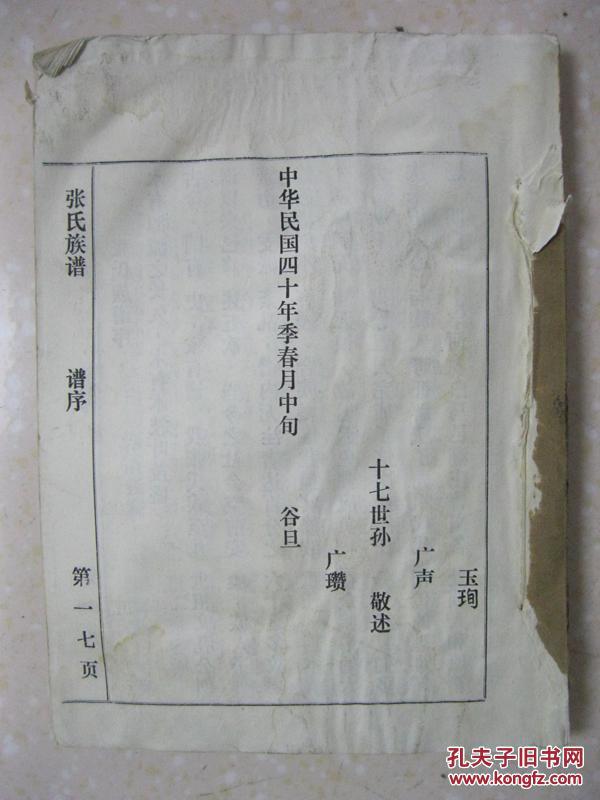 玉珣
广声
十七世孙 敬述
广瓒
中华民国四十年季春月中旬 谷旦
张氏族谱 谱序 第一七页
孔夫子旧书网
www.kongfz.com